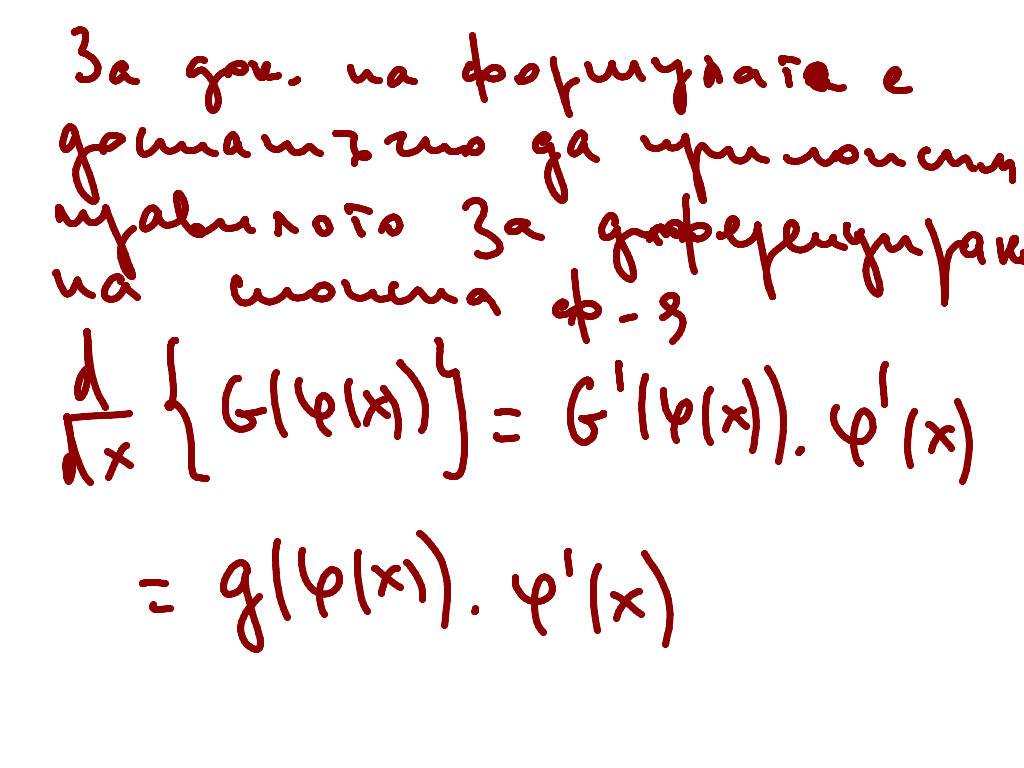 За док. на формулата е
достатъчно да приложим
правилото за диференциран
на сложна ф-я
d/dx { G(φ(x)) } = G'(φ(x)) . φ'(x)
= g(φ(x)) . φ'(x)